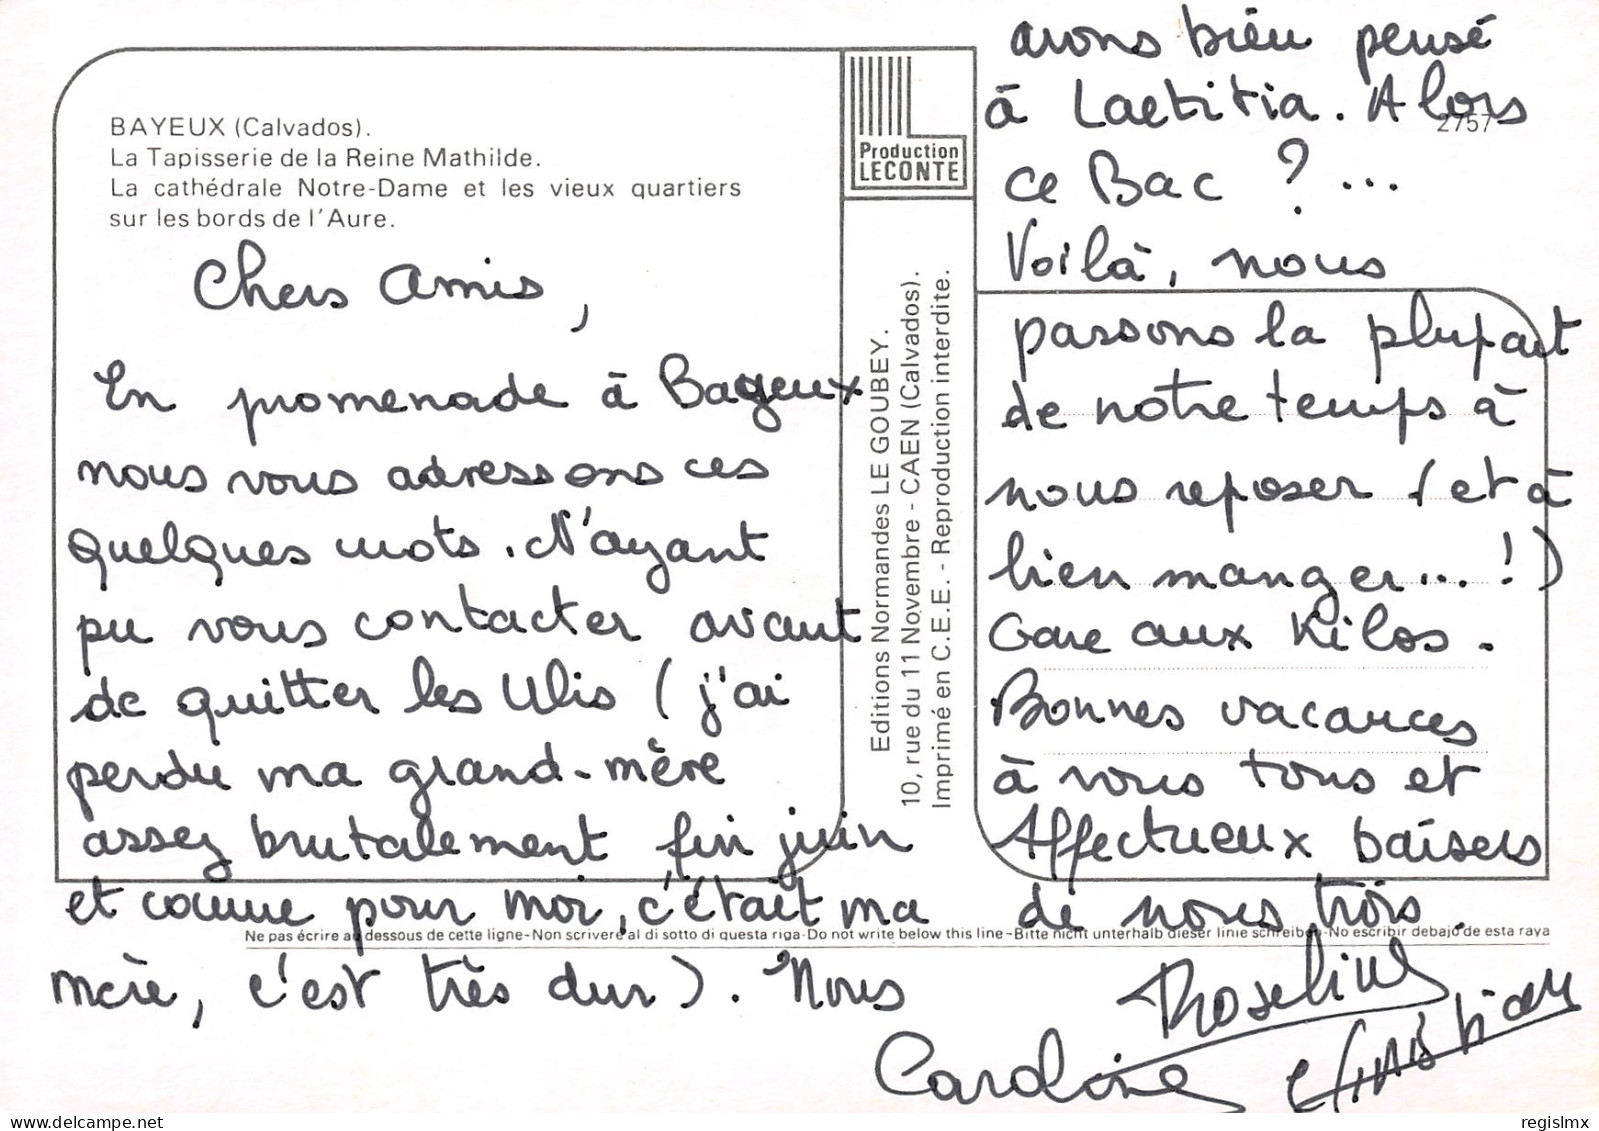 BAYEUX (Calvados).
La Tapisserie de la Reine Mathilde.
La cathédrale Notre-Dame et les vieux quartiers
sur les bords de l'Aure.
Chers Amis,
En promenade à Bayeux
nous vous adressons ces
quelques mots. N'ayant
pu vous contacter avant
de quitter les Ulis (j'ai
perdu ma grand-mère
assez brutalement fin juin
et comme pour moi, c'était ma
mère, c'est très dur). Nous
Production
LECONTE
Editions Normandes LE GOUBEY.
10, rue du 11 Novembre - CAEN (Calvados).
Imprimé en C.E.E. - Reproduction interdite.
2757
avons bien pensé
à Laetitia. Alors
ce Bac ? ...
Voilà, nous
passons la plupart
de notre temps à
nous reposer (et à
bien manger... !)
Gare aux Kilos.
Bonnes vacances
à vous tous et
Affectueux baisers
de nous trois.
Ne pas écrire au dessous de cette ligne-Non scrivere al di sotto di questa riga-Do not write below this line-Bitte nicht unterhalb dieser linie schreiben-No escribir debajo de esta raya
Roseline
Caroline Christian
regislmx